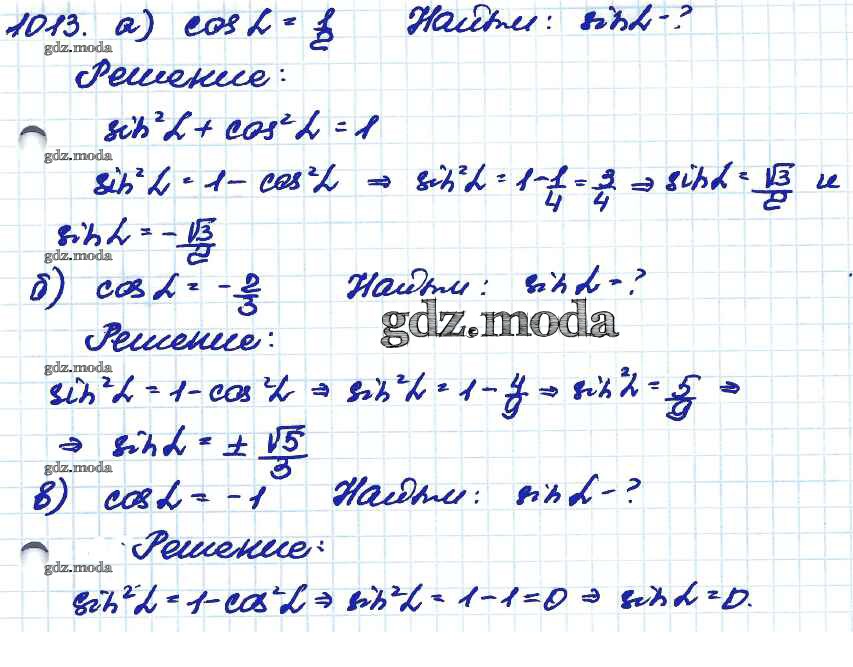 1013. а) cos α = 1/2 Найти: sin α - ?
gdz.moda
Решение:
sin² α + cos² α = 1
gdz.moda
sin² α = 1 - cos² α ⇒ sin² α = 1 - 1/4 = 3/4 ⇒ sin α = √3/2 и
sin α = - √3/2
gdz.moda
б) cos α = - 2/3 Найти: sin α - ?
gdz.moda
Решение:
gdz.moda
sin² α = 1 - cos² α ⇒ sin² α = 1 - 4/9 ⇒ sin² α = 5/9 ⇒
⇒ sin α = ± √5/3
gdz.moda
в) cos α = - 1 Найти: sin α - ?
Решение:
gdz.moda
sin² α = 1 - cos² α ⇒ sin² α = 1 - 1 = 0 ⇒ sin α = 0.